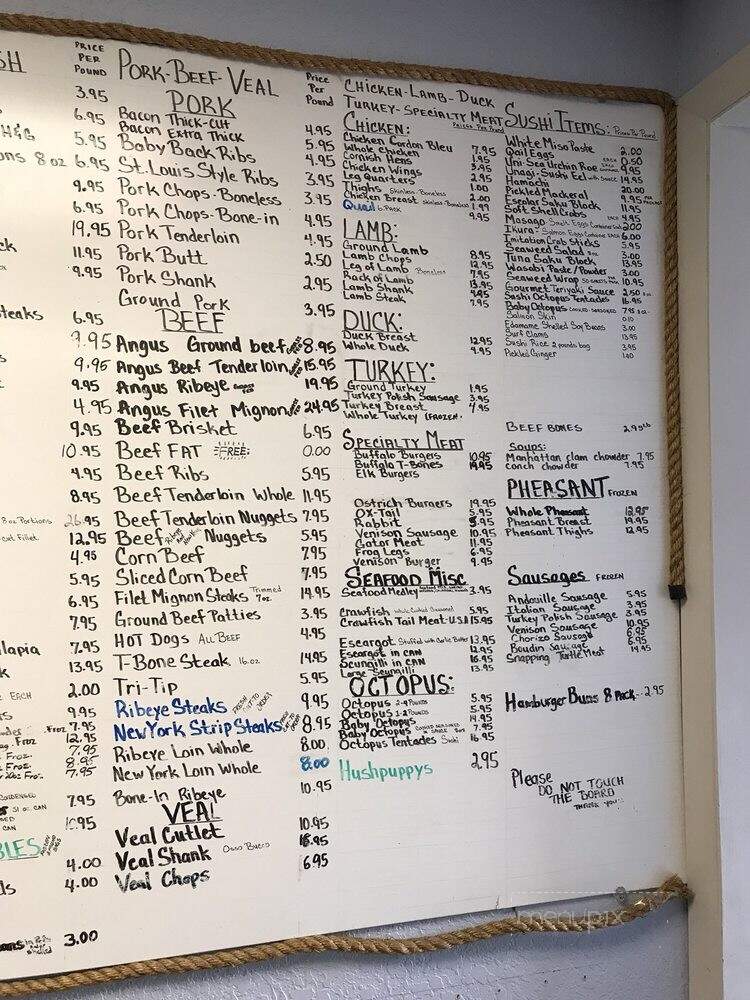 SH
PRICE PER POUND
3.95
6.95
H&G 5.95
ons 8 oz 6.95
9.95
6.95
19.95
11.95
9.95
steaks 6.95
9.95
9.95
9.95
4.95
9.95
10.95
4.95
8.95
8 oz Portions 26.95
cut Fillet 12.95
4.95
5.95
6.95
7.95
lapia 7.95
13.95
EACH 2.00
9.95
Froz 7.95
Froz 12.95
Froz. 7.95
Froz. 8.95
7.95
7.95
CAN
10.95
BLES
4.00
4.00
3.00
PORK-BEEF-VEAL
Price Per Pound
PORK
Bacon Thick-Cut 4.95
Bacon Extra Thick 4.95
Baby Back Ribs
St. Louis Style Ribs 3.95
Pork Chops-Boneless 3.95
Pork Chops-Bone-in 4.95
Pork Tenderloin 4.95
Pork Butt 2.50
Pork Shank 2.95
Ground Pork 3.95
BEEF
Angus Ground beef 8.95
Angus Beef Tenderloin 15.95
Angus Ribeye 19.95
Angus Filet Mignon 24.95
Beef Brisket 6.95
Beef FAT FREE 0.00
Beef Ribs 5.95
Beef Tenderloin Whole 11.95
Beef Tenderloin Nuggets 7.95
Beef Nuggets 5.95
Corn Beef 7.95
Sliced Corn Beef 7.95
Filet Mignon Steaks Trimmed 7oz. 14.95
Ground Beef Patties 3.95
HOT Dogs ALL BEEF 4.95
T-Bone Steak 16.oz 14.95
Tri-Tip 5.95
Ribeye Steaks 9.95
New York Strip Steaks 8.95
Ribeye Loin Whole 8.00
New York Loin Whole 8.00
Bone-In Ribeye 10.95
VEAL
Veal Cutlet 10.95
Veal Shank Osso Buco 15.95
Veal Chops 6.95
CHICKEN-LAMB-DUCK
TURKEY-SPECIALTY MEAT
Prices Per Pound
CHICKEN:
Chicken Cordon Bleu 7.95
Whole Chicken 1.95
Cornish Hens 3.95
Chicken Wings 2.95
Leg Quarters 1.00
Thighs Skinless-Boneless 2.00
Chicken Breast Skinless-Boneless 1.99
Quail 6-Pack 9.95
LAMB:
Ground Lamb 8.95
Lamb Chops 12.95
Leg of Lamb Boneless 7.95
Rack of Lamb 13.95
Lamb Shank 4.95
Lamb Steak 7.95
DUCK:
Duck Breast 12.95
Whole Duck 4.95
TURKEY:
Ground Turkey 1.95
Turkey Polish Sausage 3.95
Turkey Breast 4.95
Whole Turkey (FROZEN.
SPECIALTY MEAT
Buffalo Burgers 10.95
Buffalo T-Bones 14.95
Elk Burgers
Ostrich Burgers 19.95
OX-Tail 5.95
Rabbit 5.95
Venison Sausage 10.95
Gator Meat 11.95
Frog Legs 6.95
Venison Burger 9.95
SEAFOOD MISC
Seafood Medley 3.95
Crawfish Whole Cooked Seasoned 5.95
Crawfish Tail Meat-U.S.A 15.95
Escargot Stuffed with Garlic Butter 13.95
Escargot in CAN 12.95
Scungilli in CAN 16.95
Large Scungilli 13.95
OCTOPUS:
Octopus 2-4 Pounds 5.95
Octopus 1-2 Pounds 5.95
Baby Octopus 14.95
Baby Octopus 7.95
Octopus Tentacles Sushi 16.95
Hushpuppys 2.95
SUSHI ITEMS: Prices Per Pound
White Miso Paste 2.00
Qail Eggs EACH 0.50
Uni-Sea Urchin Roe 9.95
Unagi-Sushi Eel with Sauce 14.95
Hamachi 20.00
Pickled Mackeral 9.95
Escolar Saku Block 11.95
Soft Shell Crabs EACH 4.95
Masago 2.00
Ikura 6.00
Imitation Crab Sticks 5.95
Seaweed Salad 3.00
Tuna Saku Block 13.95
Wasabi Paste/Powder 3.00
Seaweed Wrap 10.95
Gourmet Teriyaki Sauce 2.50
Sushi Octopus Tentacles 16.95
Baby Octopus COOKED-SEASONED 7.95
Salmon Skin
Edamame Shelled Soy Beans 3.00
Surf Clams 13.95
Sushi Rice 2 pounds bag 3.95
Pickled Ginger
BEEF BONES 2.95 LB
Soups:
Manhattan clam chowder 7.95
conch chowder 7.95
PHEASANT FROZEN
Whole Pheasant 12.95
Pheasant Breast 19.95
Pheasant Thighs 12.95
Sausages FROZEN
Andouille Sausage 5.95
Italian Sausage 3.95
Turkey Polish Sausage 3.95
Venison Sausage 10.95
Chorizo Sausage 6.95
Boudin Sausage 6.95
Snapping Turtle Meat 14.95
Hamburger Buns 8 Pack - 2.95
Please
DO NOT TOUCH
THE BOARD
THANK YOU
menupix